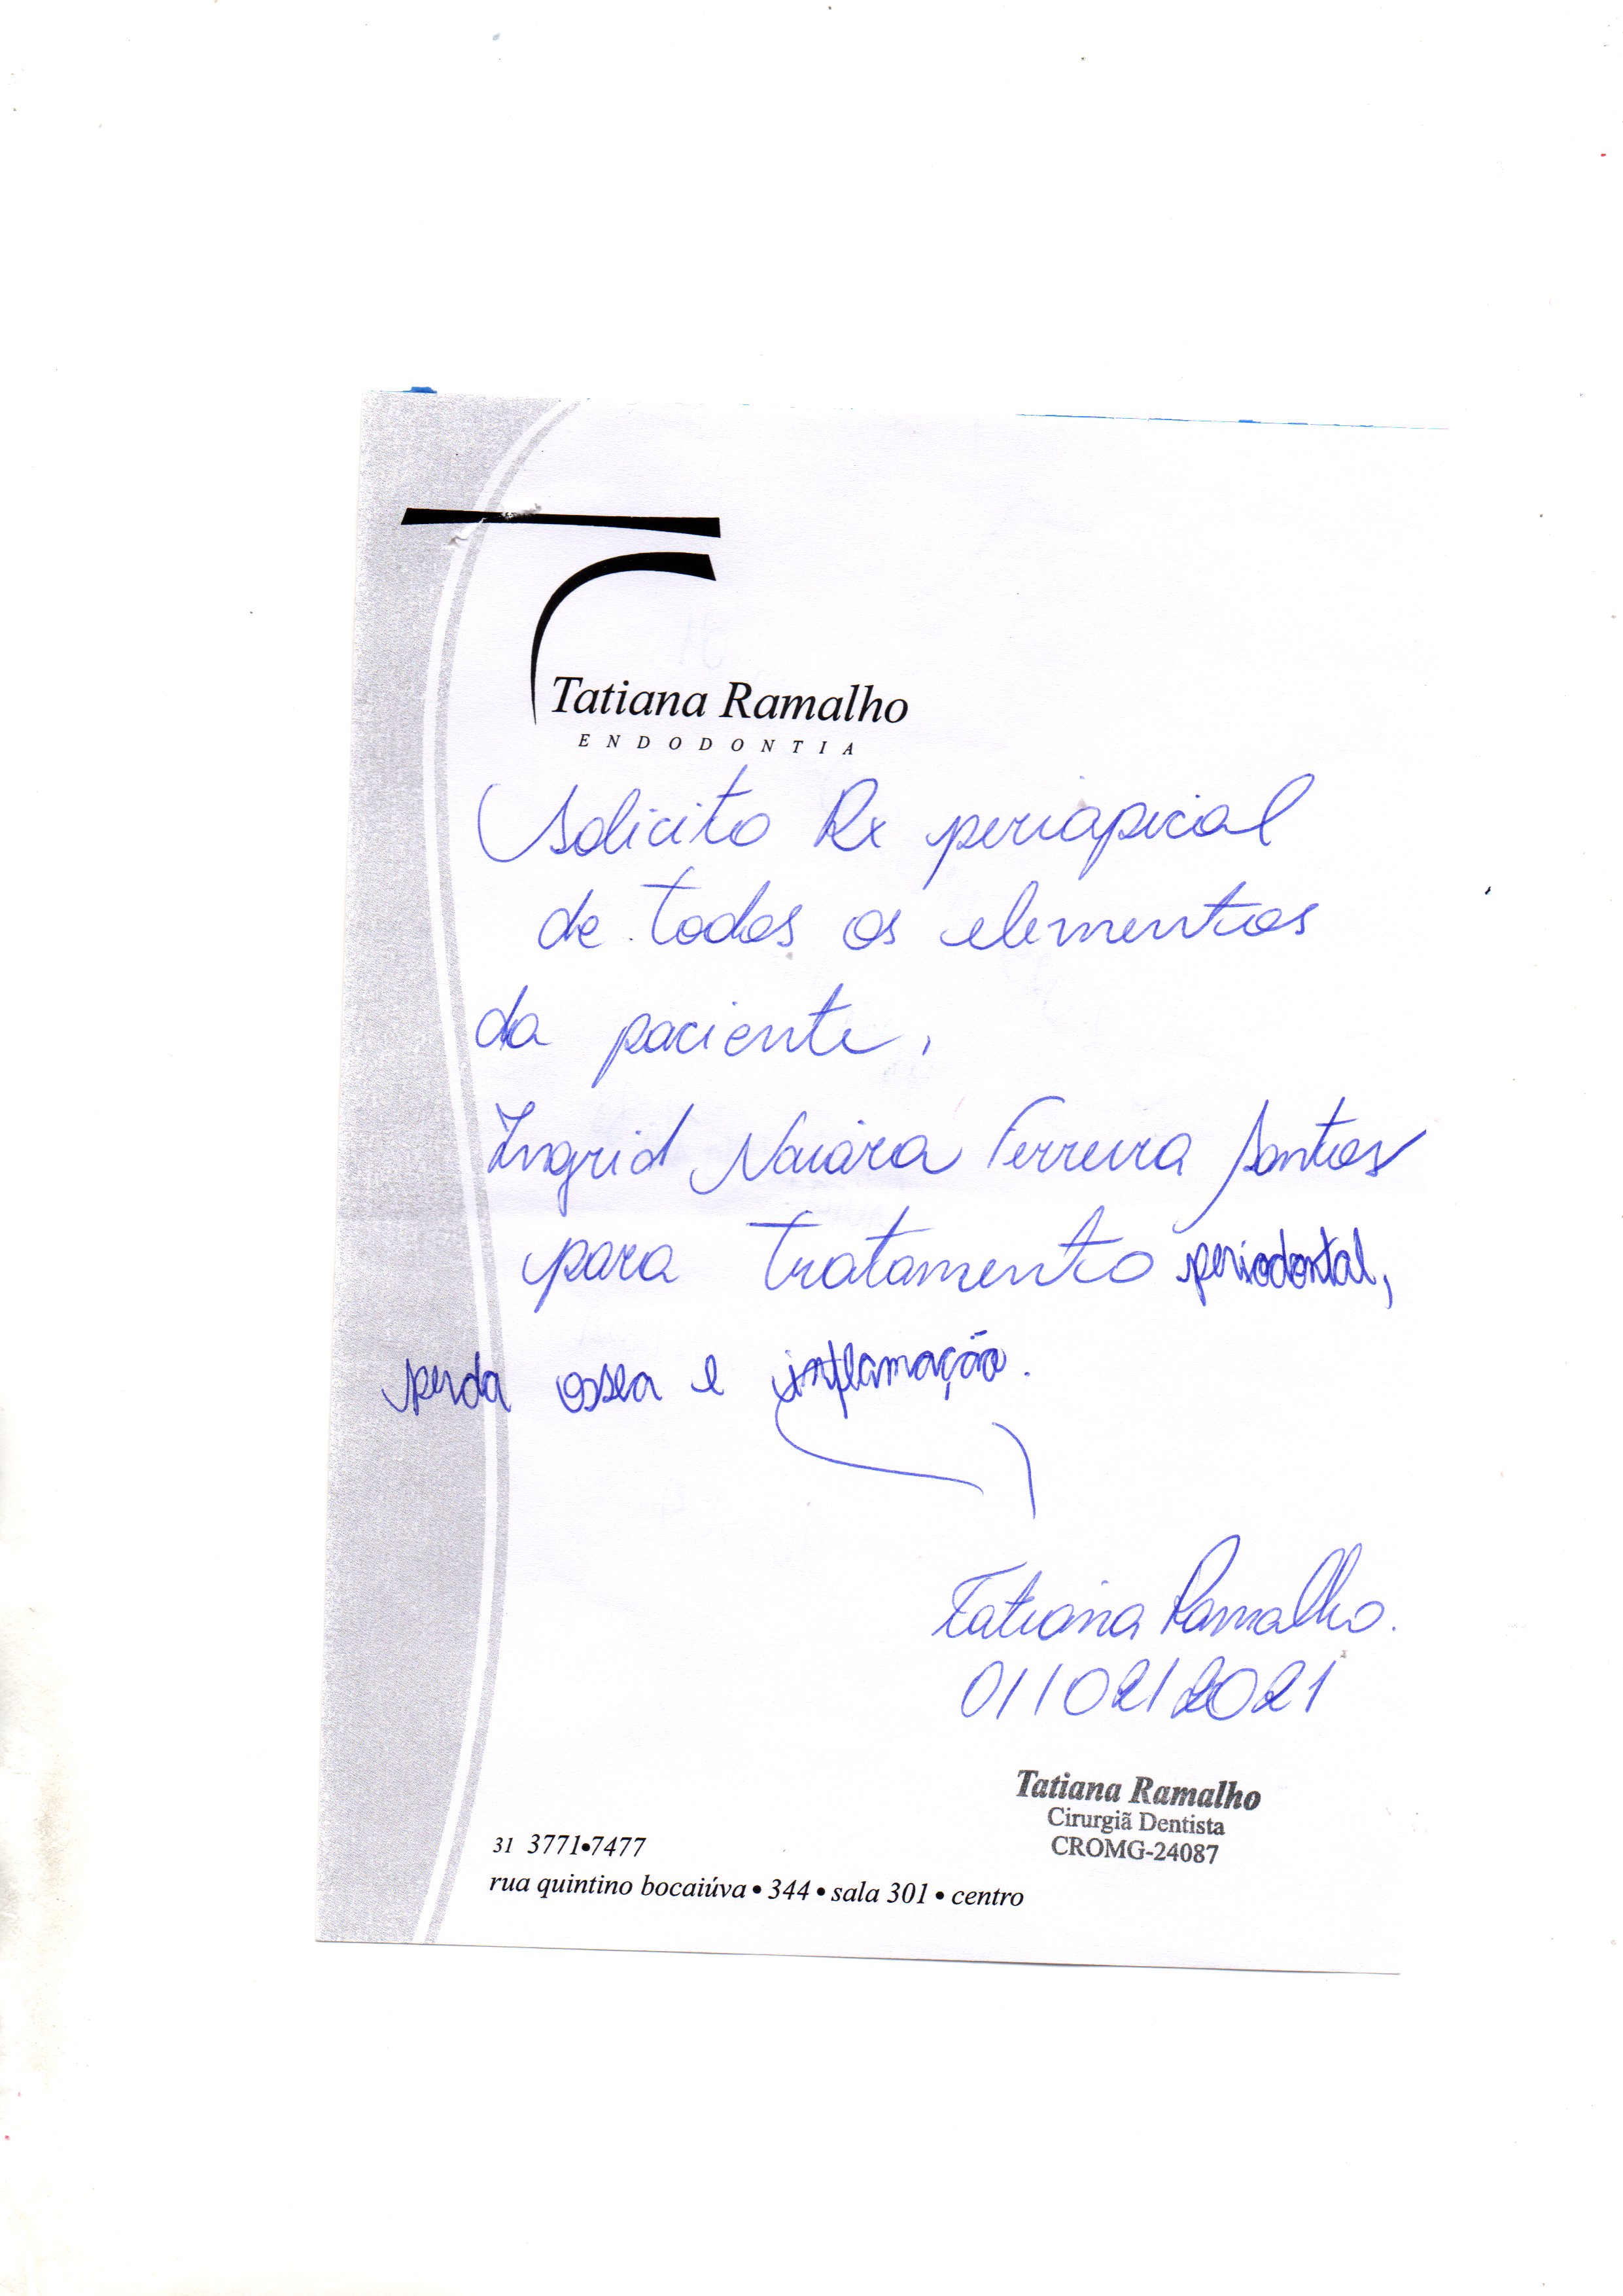 Tatiana Ramalho
ENDODONTIA
Solicito Rx periapical
de todos os elementos
da paciente,
Ingrid Naiára Ferreira Santos
para tratamento periodontal,
perda ossea e inflamação.
Tatiana Ramalho.
01/02/2021
Tatiana Ramalho
Cirurgiã Dentista
CROMG-24087
31 3771•7477
rua quintino bocaiúva • 344 • sala 301 • centro